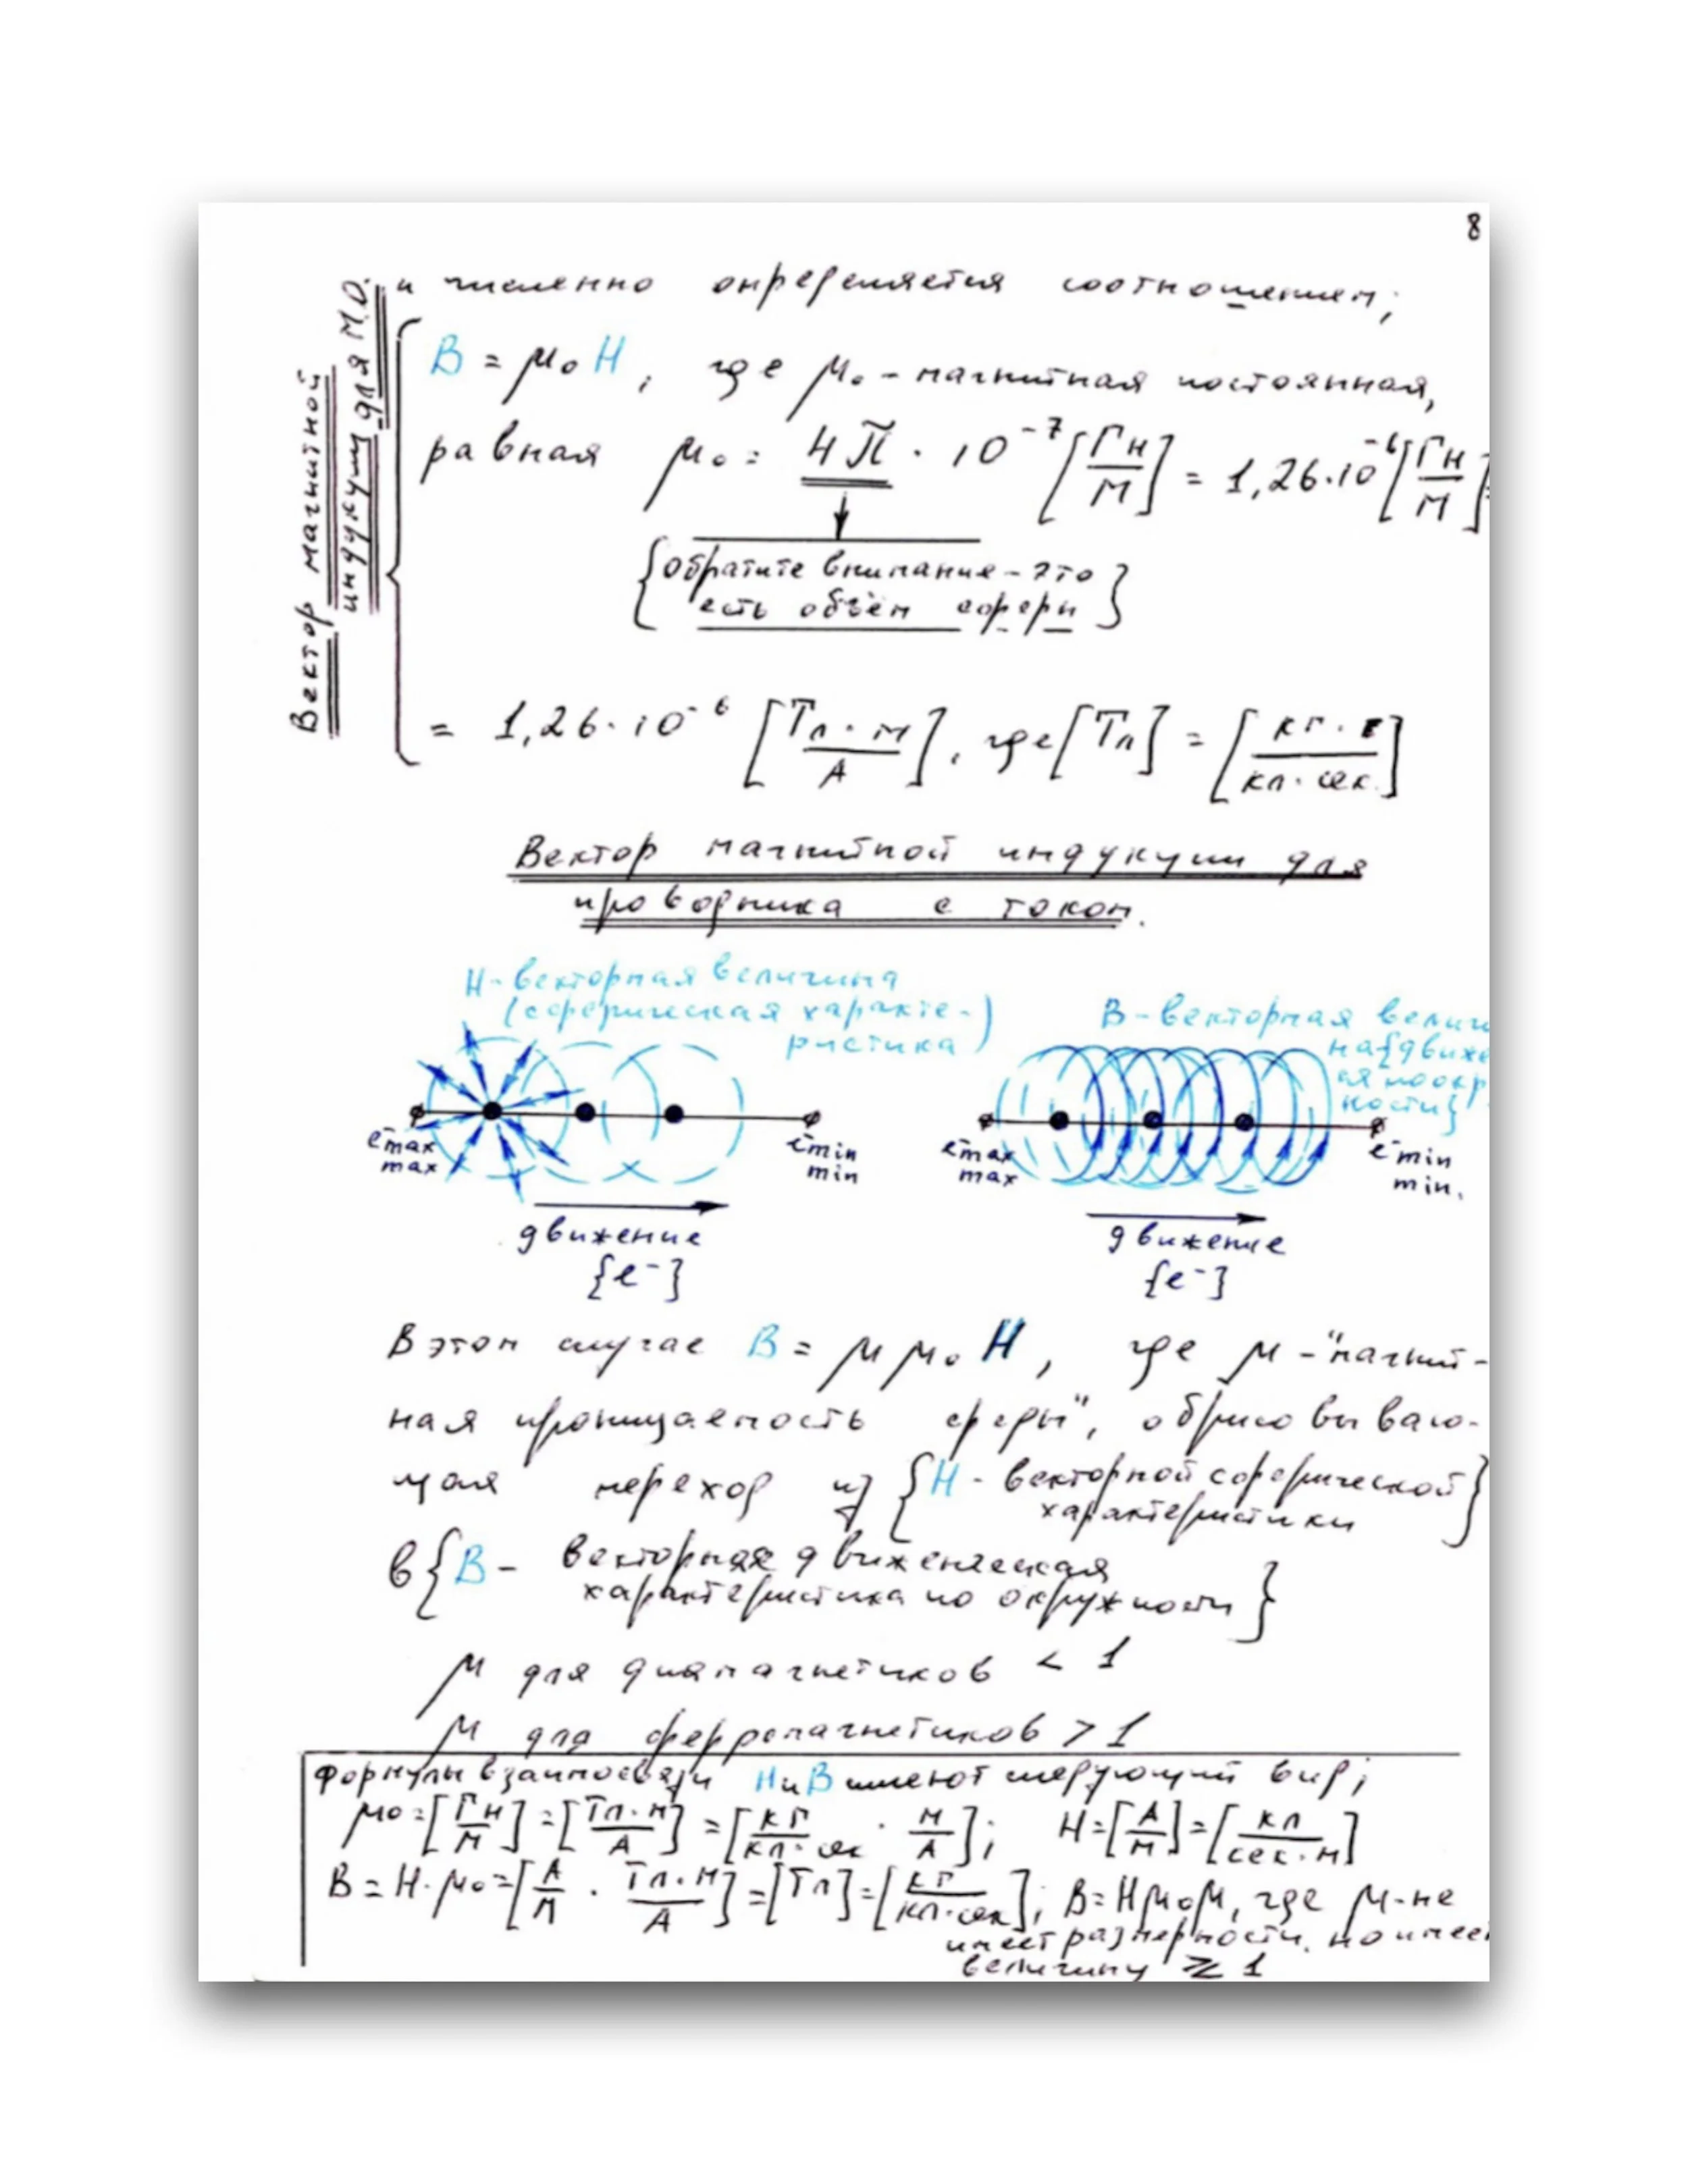 8
и численно определяется соотношением;
Вектор магнитной
индукции для М.О.
B = μ₀H, где μ₀ - магнитная постоянная,
равная μ₀ = 4π · 10⁻⁷ [Гн/м] = 1,26·10⁻⁶ [Гн/м] =
{обратите внимание - это
есть объём сферы}
= 1,26·10⁻⁶ [Тл·м/А], где [Тл] = [кг· /кл·сек.]
Вектор магнитной индукции для
проводника с током.
H - векторная величина
(сферическая характе-
ристика)
B - векторная велич
на {движе
ая по окр
ности}
e⁻max
max
e⁻min
min
движение
{e⁻}
e⁻max
max
e⁻min
min.
движение
{e⁻}
В этом случае B = μμ₀H, где μ - "магнит-
ная проницаемость сферы", обрисовываю-
щая переход из {H - векторной сферической
характеристики}
в {B - векторная движенческая
характеристика по окружности}
μ для диамагнетиков < 1
μ для ферромагнетиков > 1
Формулы взаимосвязи H и B имеют следующий вид;
μ₀ = [Гн/м] = [Тл·м/А] = [кг/кл·сек · м/А]; H = [А/м] = [кл/сек·м]
B = H·μ₀ = [А/м · Тл·м/А] = [Тл] = [кг/кл·сек]; B = Hμ₀μ, где μ - не
имеет размерности, но имее
величину ≷ 1